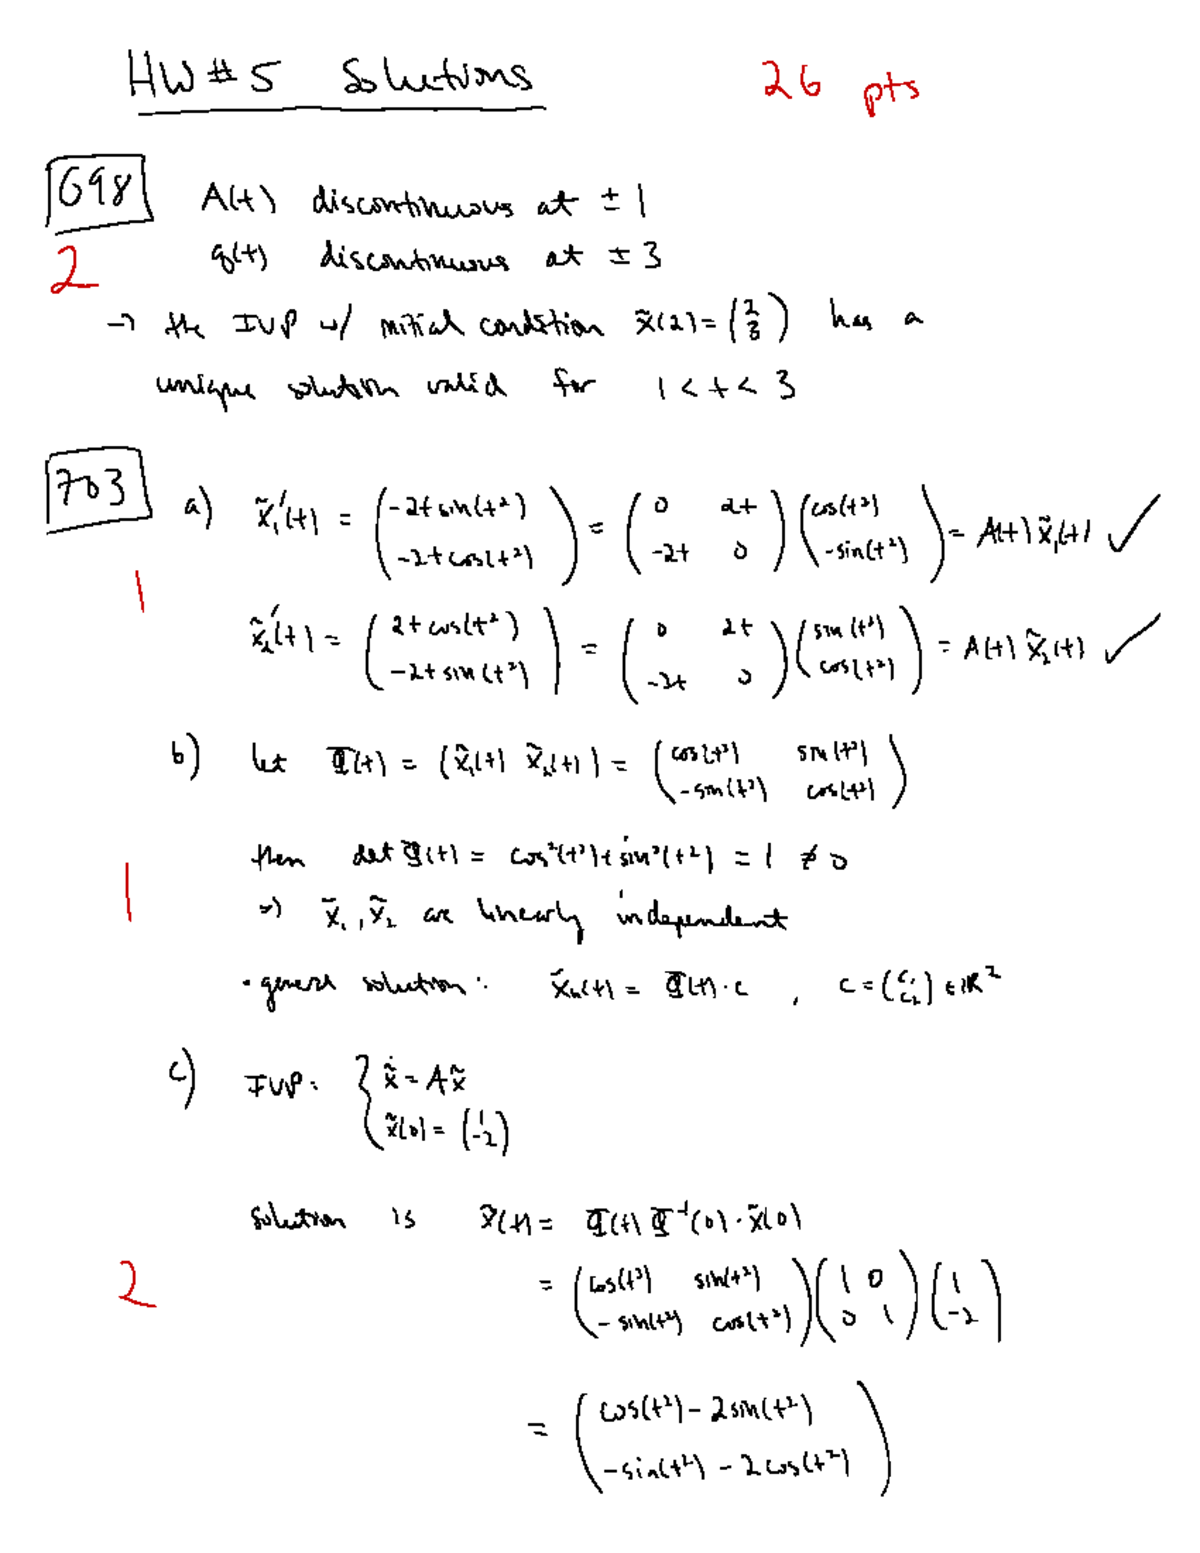 HW #5 Solutions 26 pts
698 A(t) discontinuous at ± 1
2 q(t) discontinuous at ± 3
→ the IVP w/ initial condition x̃(2) = (2 3) has a
unique solution valid for 1 < t < 3
703 a) x̃₁'(t) = (-2t sin(t²) -2t cos(t²)) = (0 2t -2t 0)(cos(t²) -sin(t²)) = A(t) x̃₁(t) ✓
1
x̃₂'(t) = (2t cos(t²) -2t sin(t²)) = (0 2t -2t 0)(sin(t²) cos(t²)) = A(t) x̃₂(t) ✓
b) let Φ(t) = (x̃₁(t) x̃₂(t)) = (cos(t²) sin(t²) -sin(t²) cos(t²))
then det Φ(t) = cos²(t²) + sin²(t²) = 1 ≠ 0
1
⇒ x̃₁, x̃₂ are linearly independent
• general solution: x̃ₕ(t) = Φ(t)·c , c = (c₁ c₂) ∈ ℝ²
c) IVP: { x̃̇ = A x̃
x̃(0) = (1 -2)
solution is x̃(t) = Φ(t) Φ⁻¹(0) · x̃(0)
2 = (cos(t²) sin(t²) -sin(t²) cos(t²))(1 0 0 1)(1 -2)
= (cos(t²) - 2 sin(t²) -sin(t²) - 2 cos(t²))